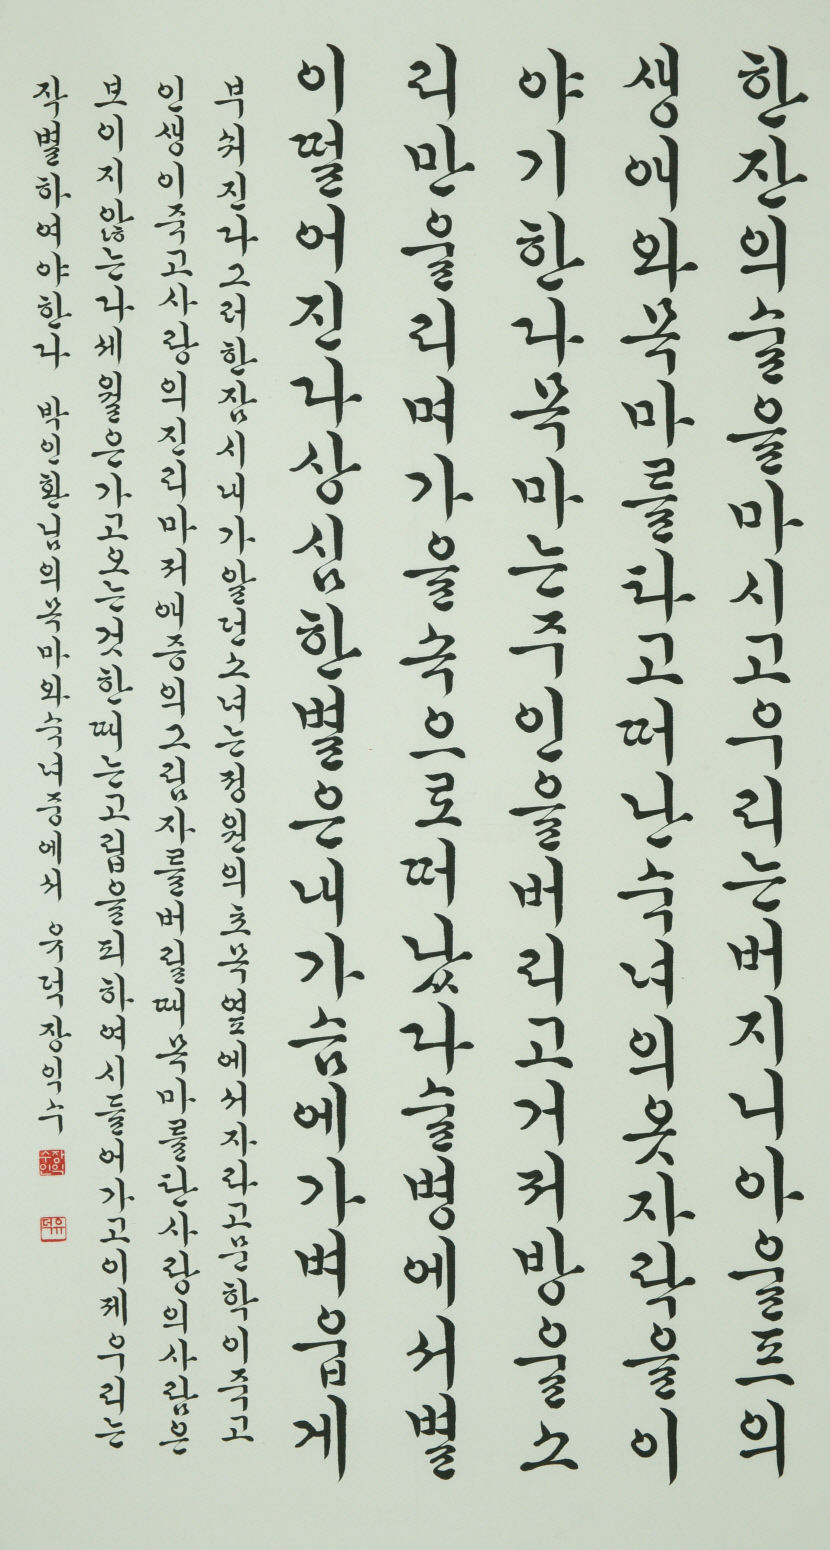 한잔의술을마시고우리는버지니아울프의
생애와목마를타고떠난숙녀의옷자락을이
야기한다목마는주인을버리고거저방울소
리만울리며가을속으로떠났다술병에서별
이떨어진다상심한별은내가슴에가벼웁게
부숴진다그러한잠시내가알던소녀는정원의초목옆에서자라고문학이죽고
인생이죽고사랑의진리마저애증의그림자를버릴때목마를탄사랑의사람은
보이지않는다세월은가고오는것한때는고립을피하여시들어가고이제우리는
작별하여야한다 박인환님의목마와숙녀중에서 유덕장익수
장익수인
유덕